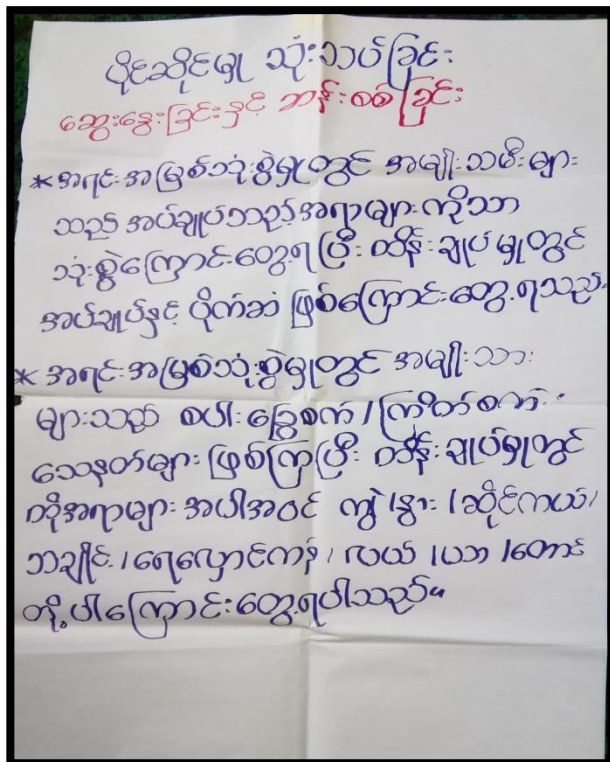 ပိုင်ဆိုင်မှု သုံးသပ်ခြင်း
ဆွေးနွေးခြင်းနှင့် ဆန်းစစ်ခြင်း
* အရင်းအမြစ်သုံးစွဲမှုတွင် အမျိုးသမီးများ
သည် အပ်ချုပ်သည့်အရာများကိုသာ
သုံးစွဲကြောင်းတွေ့ရပြီး ထိန်းချုပ်မှုတွင်
အပ်ချုပ်နှင့် ပိုက်ဆံ ဖြစ်ကြောင်းတွေ့ရသည်။
* အရင်းအမြစ်သုံးစွဲမှုတွင် အမျိုးသား
များသည် စပါးခြွေစက် / ကြိတ်စက်
သေနတ်များ ဖြစ်ကြပြီး ထိန်းချုပ်မှုတွင်
ထိုအရာများ အပါအဝင် ကျွဲ / နွား / ဆိုင်ကယ် /
ဘချိုင့် / ရေလှောင်ကန် / လယ် / ယာ / တောင်
တို့ပါကြောင်းတွေ့ရပါသည်။